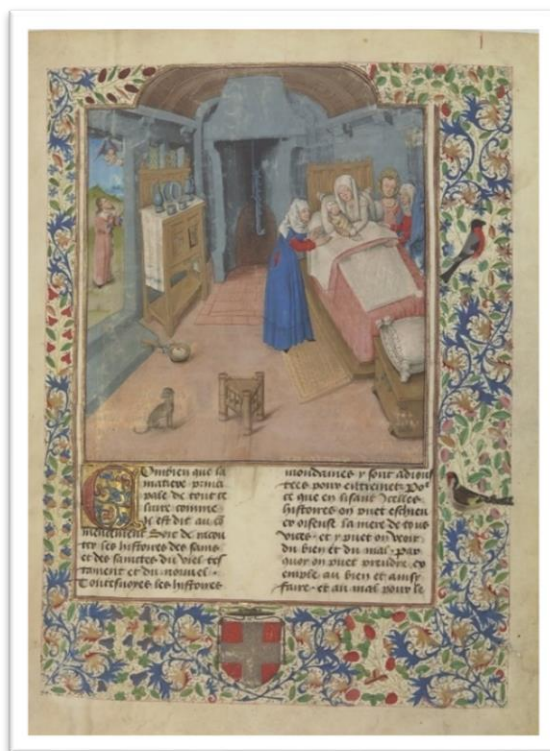 Combien que la
matiere princi
pale de tout ce
livre comme
il est dit au
mencement soit de racon
ter les histoires des sains
et des sainctes du viel tes
tament et du nouvel.
Toutesvoyes les histoires
mondaines y sont
pour Pos
ce que en lisant ycelles
histoires on puet eschiev
er oiseuse la mere de tous
vices. et y puet on veoir
du bien et du mal. par
quoy on puet prendre ex
emple au bien et ainsy
faire. et au mal pour le